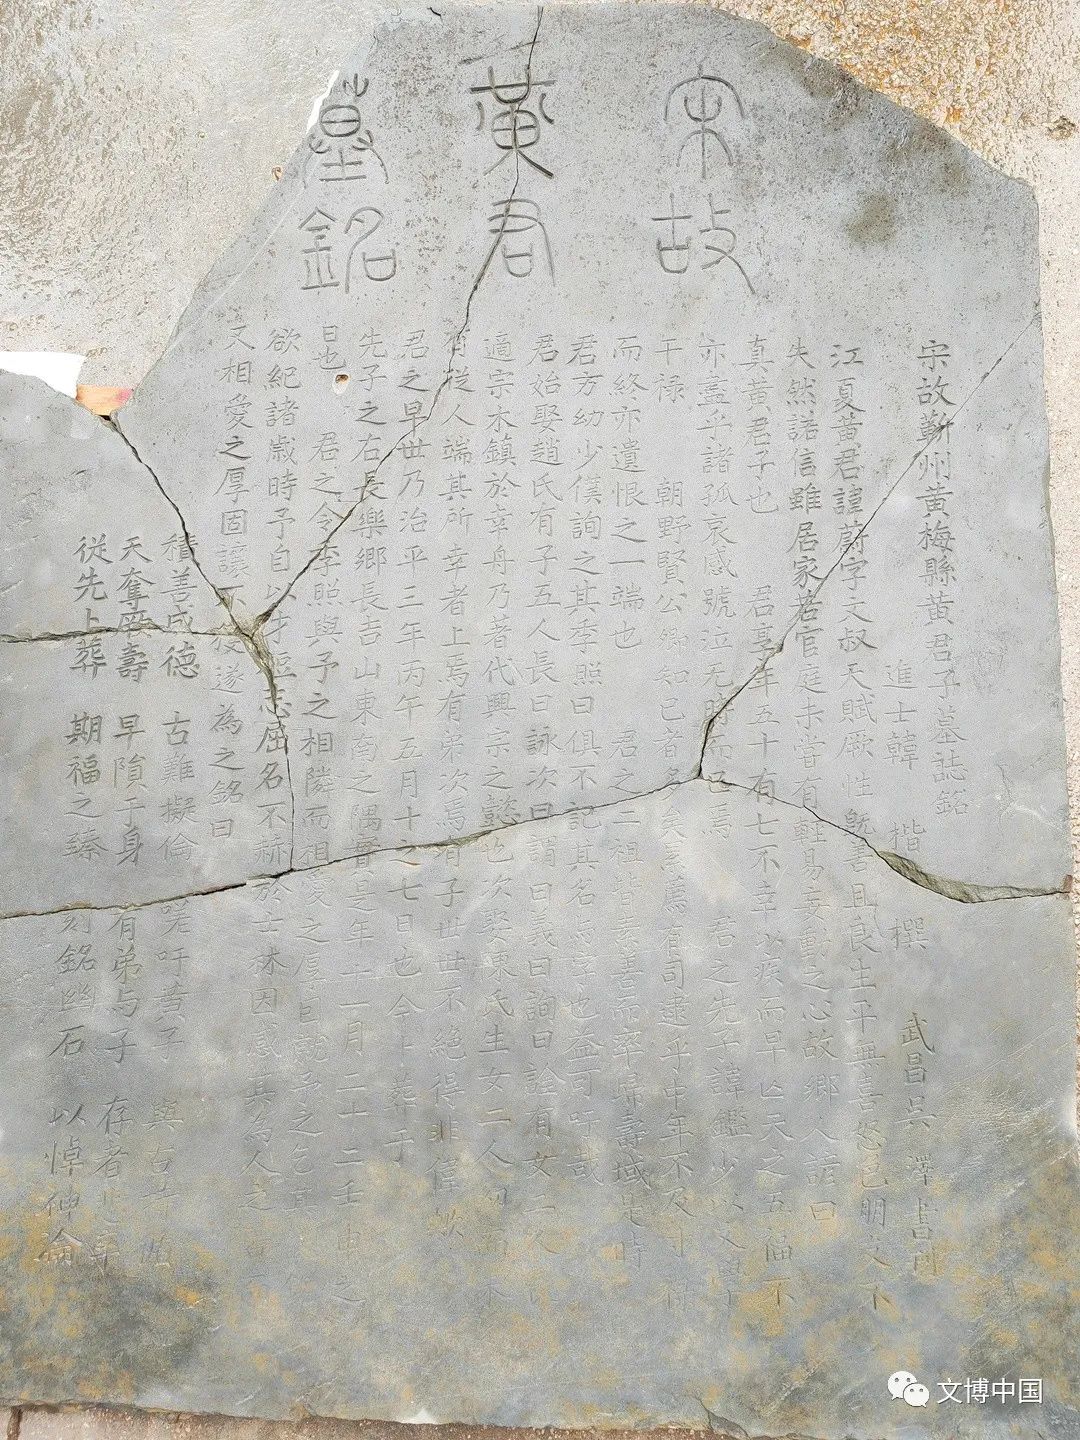 宋故
黄君
墓銘
宋故蘄州黄梅縣黄君子墓誌銘
進士韓 楷 撰 武昌吳 澤書刊
江夏黄君諱蔚字文叔天賦厥性既善且良生平無喜怒
失然語信雖居家若官庭未嘗有輕易妄動之心故鄉人諺曰
真黄君子也 君享年五十有七不幸以疾而早亡天之五福不
亦盡乎諸孤哀感號泣无時而已焉 君之先子諱鑑少以
干祿 朝野賢公 知已者多矣 薦有司逮乎中年不及
而終亦遺恨之一端也 君之二祖皆素善而率歸壽域是時
君方幼少僕詢之其季照曰俱不記其名与字也益可吁哉
君始娶趙氏有子五人長曰詠次曰謂曰義曰詢曰詮有女二人
適宗木鎮於幸舟乃著代興宗之懿也次娶 氏生女二人
有從人端其所幸者上焉有弟次焉有子世世不絕得非偉歟
君之早世乃治平三年丙午五月十之七日也今卜葬于
先子之右長樂鄉長吉山東南之隅實是年十一月二十二壬申之
日也 君之令季照與予之相隣而相愛之厚 就予之乞其
欲紀諸歲時予自以才 志屈名不赫於士林因感其為人之
又相愛之厚固讓不獲遂為之銘曰
積善成德 古難擬倫 嗟吁黄子 與古
天奪厥壽 早隕于身 有弟与子 存者
從先卜葬 期福之臻 刻銘幽石 以悼
文博中国